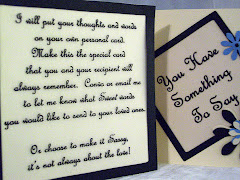 I will put your thoughts and words
on your own personal card.
Make this the special card
that you and your recipient will
always remember. Convo or email me
to let me know what Sweet words
you would like to send to your loved ones.
Or choose to make it Sassy,
it's not always about the love!
You Have
Something
To Say